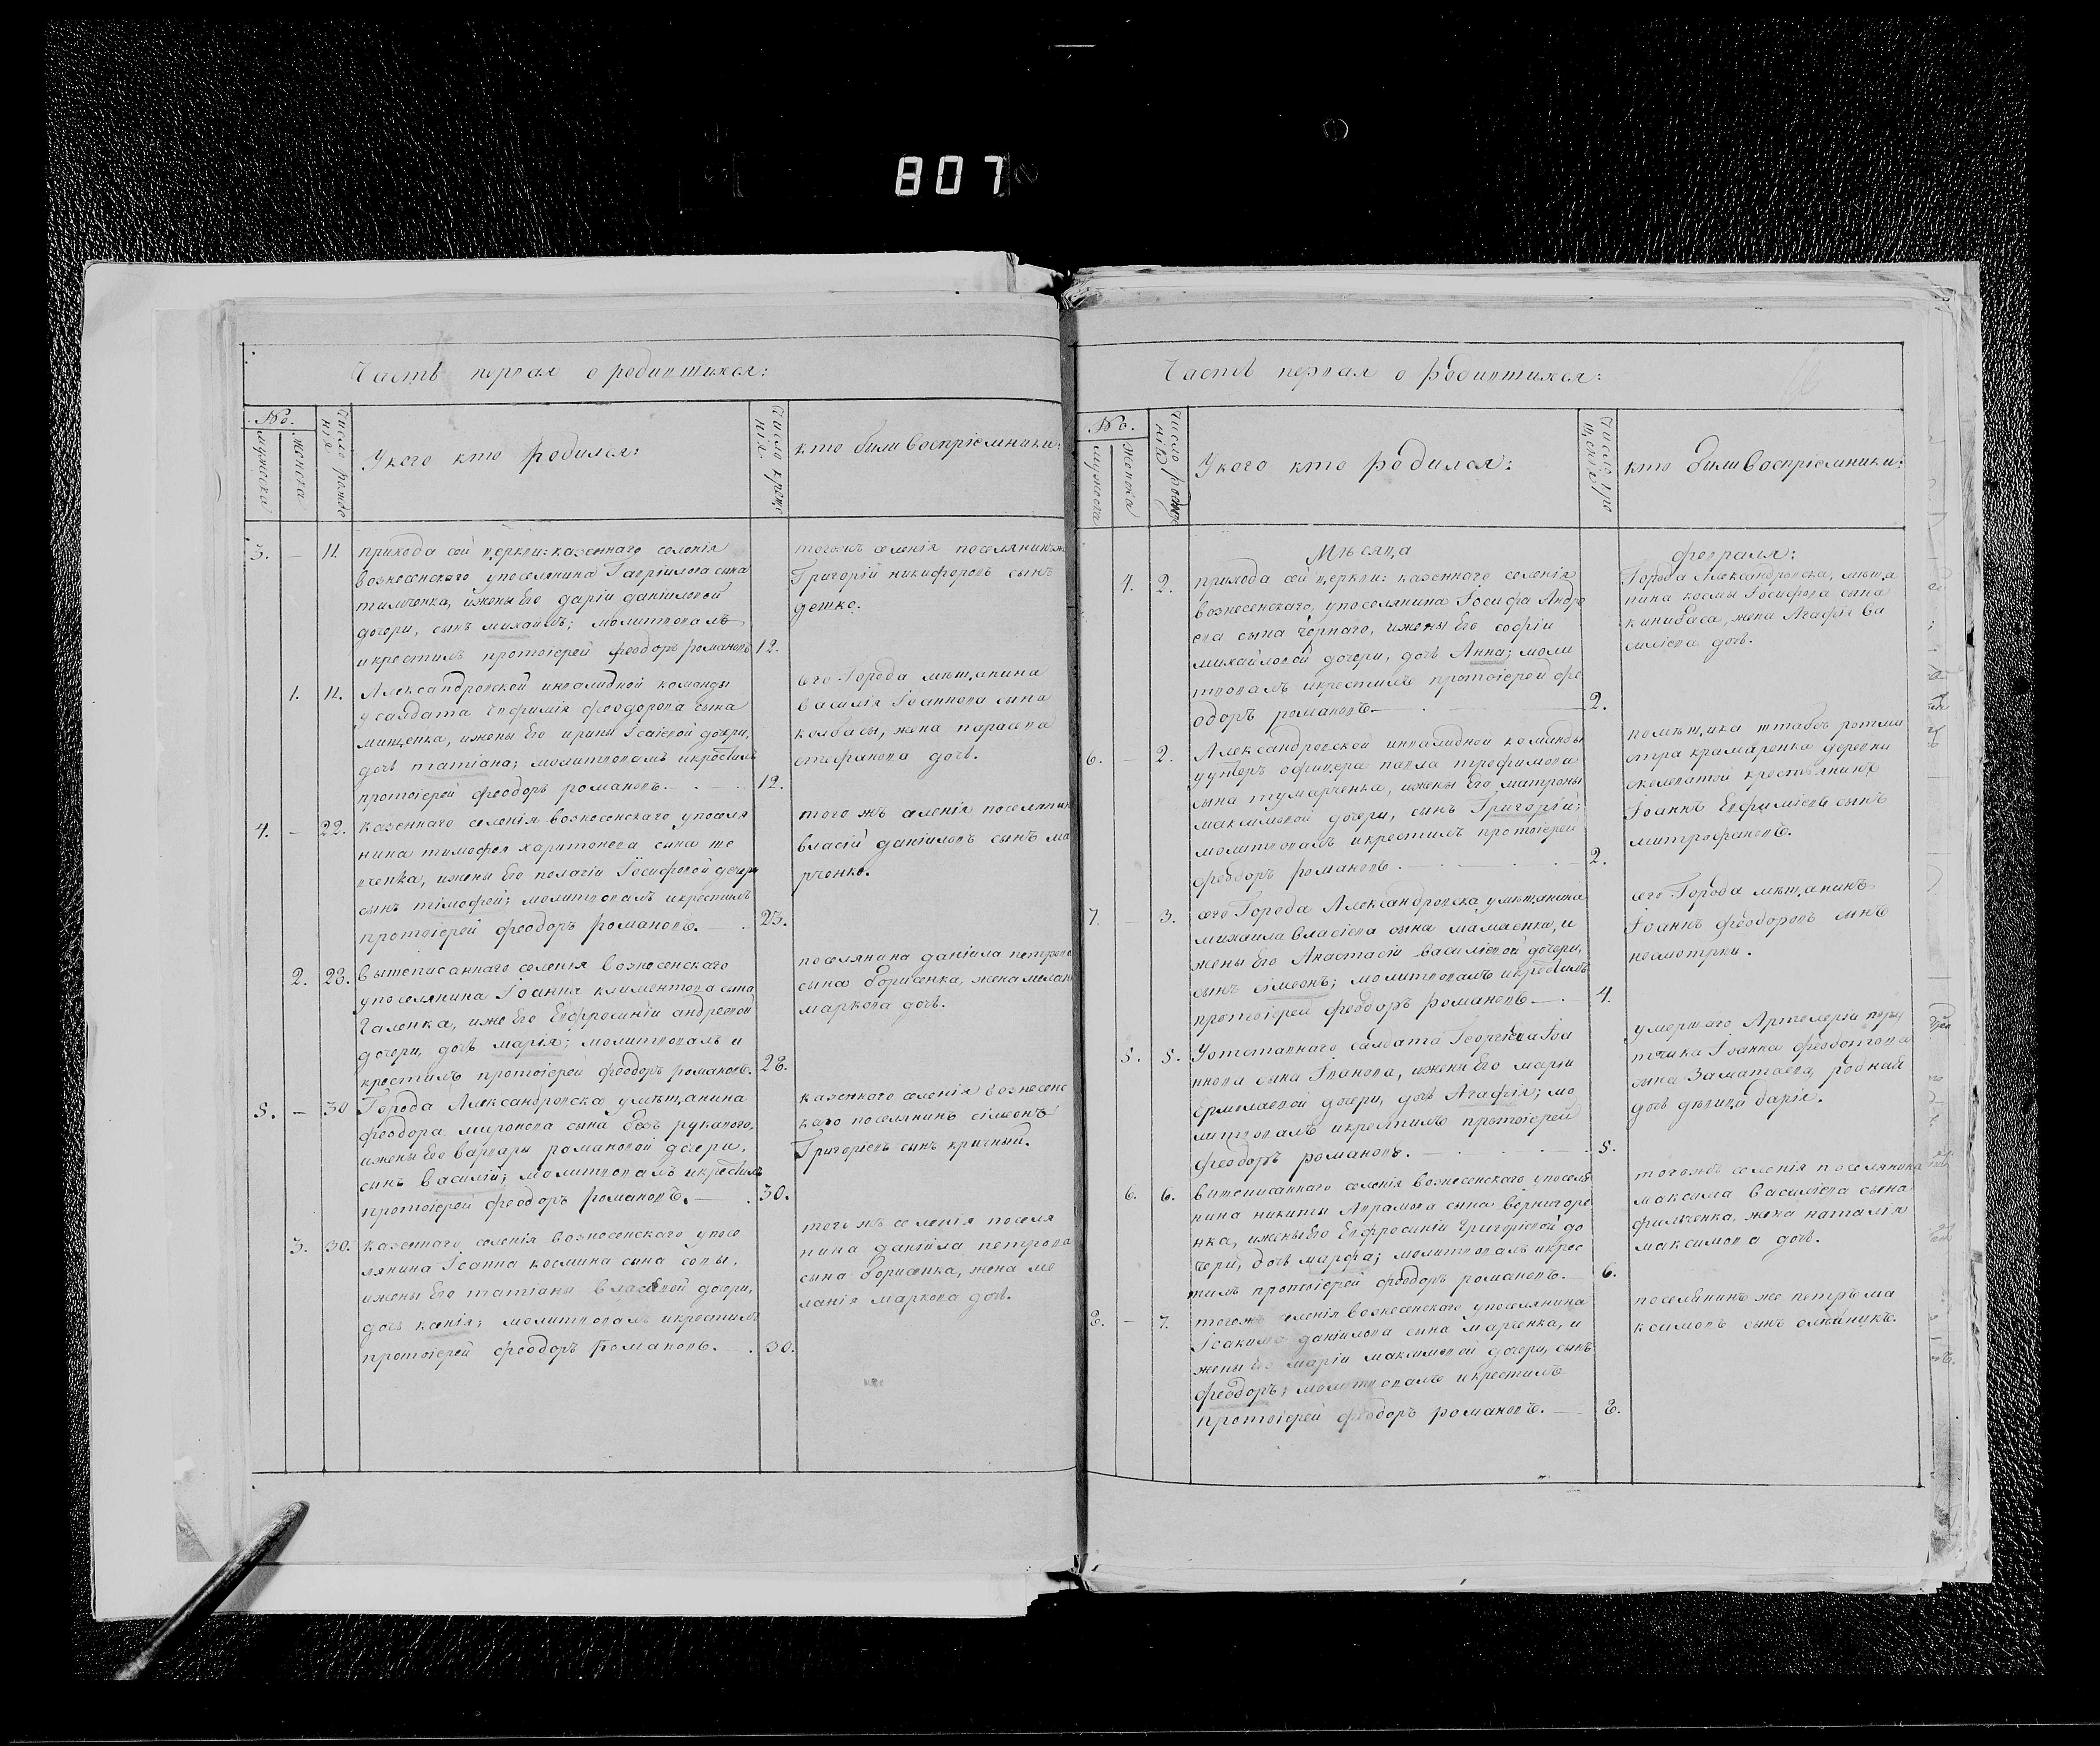 807
Часть первая о родившихся:
№.
мужеска
женска
Число рожде
нія
У кого кто родился:
Число креще
нія.
кто были Воспріемники:
3. — 11. прихода сей церкви: казеннаго селенія
вознесенского упоселянина Гавріилова сына
тимченка, ижены Его даріи даниловой
дочери, сынъ михаилъ; молитвовалъ
икрестилъ протоіерей феодоръ романовъ 12.
тогожъ селенія поселянинъ
Григорій никифоровъ сынъ
дешко.
1. 11. Александровской инвалидной команды
усалдата Евфимія феодорова сына
мищенка, ижены Его ирины Ісаіевой дочери,
дочь татіана; молитвовалъ икрестилъ
протоіерей феодоръ романовъ. 12.
сего Города мѣщанина
василія Іоаннова сына
колбасы, жена парасева
стефанова дочь.
4. — 22. казеннаго селенія вознесенскаго упоселя
нина тимофея харитонова сына ше
вченка, ижены Его пелагіи Іосифовой дочери
сынъ тімофей; молитвовалъ икрестилъ
протоіерей феодоръ романовъ. 23.
того жъ селенія поселянинъ
власій даніиловъ сынъ ма
рченко.
2. 28. вышеписаннаго селенія вознесенскаго
упоселянина Іоанна климентова сына
Галенка, иже Его Евфросиніи андреевой
дочери, дочь марія; молитвовалъ и
крестилъ протоіерей феодоръ романовъ. 28.
поселянина даніила петрова
сына Борисенка, жена мелан
маркова дочь.
5. — 30 Города Александровска умѣщанина
феодора миронова сына Безъ рукавого,
ижены Его варвары романовой дочери,
сынъ василій; молитвовалъ икрестилъ
протоіерей феодоръ романовъ. 30.
казенного селенія вознесенс
каго поселянинъ сімеонъ
Григоріевъ сынъ кричный.
3. 30. казеннаго селенія вознесенского упосе
лянина Іоанна космина сына совы,
ижены Его татіаны власіевой дочери,
дочь ксенія; молитвовалъ икрестилъ
протоіерей феодоръ романовъ. 30.
того жъ селенія поселя
нина даніила петрова
сына Борисенка, жена ме
ланія маркова дочь.
Часть первая о Родившихся:
№.
мужеска
женска
Число рожде
нія
У кого кто родился:
Число кре
щенія
кто были Воспріемники:
Мѣсяца февраля:
4. 2. прихода сей церкви: казенного селенія
вознесенскаго, упоселянина Іосифа Андре
ева сына чернаго, ижены Его софіи
михайловой дочери, дочь Анна; моли
твовалъ икрестилъ протоіерей фе
одоръ романовъ. 2.
Города Александровска, мѣща
нина космы Іосифова сына
кинибаса, жена Агафія ва
силіева дочь.
6. — 2. Александровской инвалидной команды
уунтеръ офицера павла трофимова
сына тумарченка, ижены Его матроны
максимовой дочери, сынъ Григорій;
молитвовалъ икрестилъ протоіерей
феодоръ романовъ. 2.
помѣщика штабсъ ротми
стра крамаренка деревни
скелеватой крестьянинъ
Іоаннъ Евфиміевъ сынъ
митрофановъ.
7. — 3. сего Города Александровска умѣщанина
михаила власіева сына мамаенка, и
жены Его Анастасіи василіевой дочери,
сынъ сімеонъ; молитвовалъ икрестилъ
протоіерей феодоръ романовъ. 4.
сего Города мѣщанинъ
Іоаннъ феодоровъ сынъ
несмотрки.
5. 5. Уотставнаго салдата Георгіева Іоа
ннова сына Іванова, ижены Его маріи
Ермолаевой дочери, дочь Агафія; мо
литвовалъ икрестилъ протоіерей
феодоръ романовъ. 5.
умершаго Артилеріи пору
тчика Іоанна феодотова
сына Заматаева, родная
дочь дѣвица дарія.
6. 6. вышеписанного селенія вознесенского упоселя
нина никиты Аврамова сына вернигоре
нка, ижены Его Евфросиніи Григоріевой до
чери, дочь марфа; молитвовалъ икрес
тилъ протоіерей феодоръ романовъ. 6.
тогожъ селенія поселянина
максима василіева сына
фильченка, жена наталія
максимова дочь.
8. — 7. тогожъ селенія вознесенского упоселянина
Іоакима даніилова сына марченка, и
жены Его маріи максимовой дочери, сынъ
феодоръ; молитвовалъ икрестилъ
протоіерей феодоръ романовъ. 8.
поселянинъ же петръ ма
ксимовъ сынъ олейникъ.